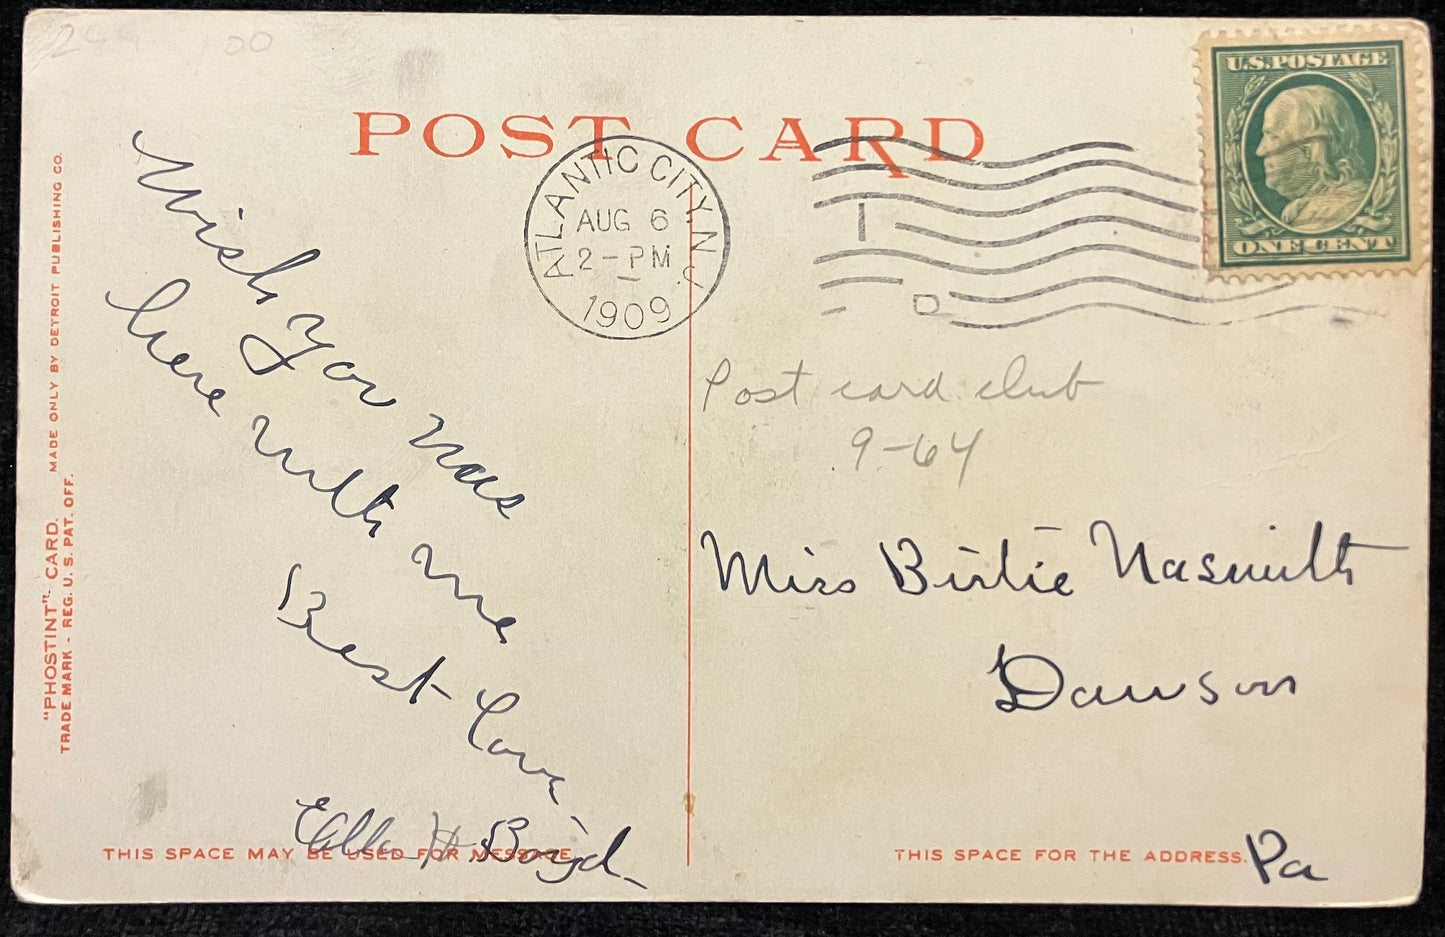 POST CARD
U.S. POSTAGE
ONE CENT
ATLANTIC CITY, N.J.
AUG 6
2-PM
1909
I
D
Wish you was
here with me
Best Love
Ella H Boyd
Post card club
9-64
Miss Birtie Nasmith
Dawson
Pa
"PHOSTINT" CARD. MADE ONLY BY DETROIT PUBLISHING CO.
TRADE MARK - REG. U. S. PAT. OFF.
THIS SPACE MAY BE USED FOR MESSAGE
THIS SPACE FOR THE ADDRESS.